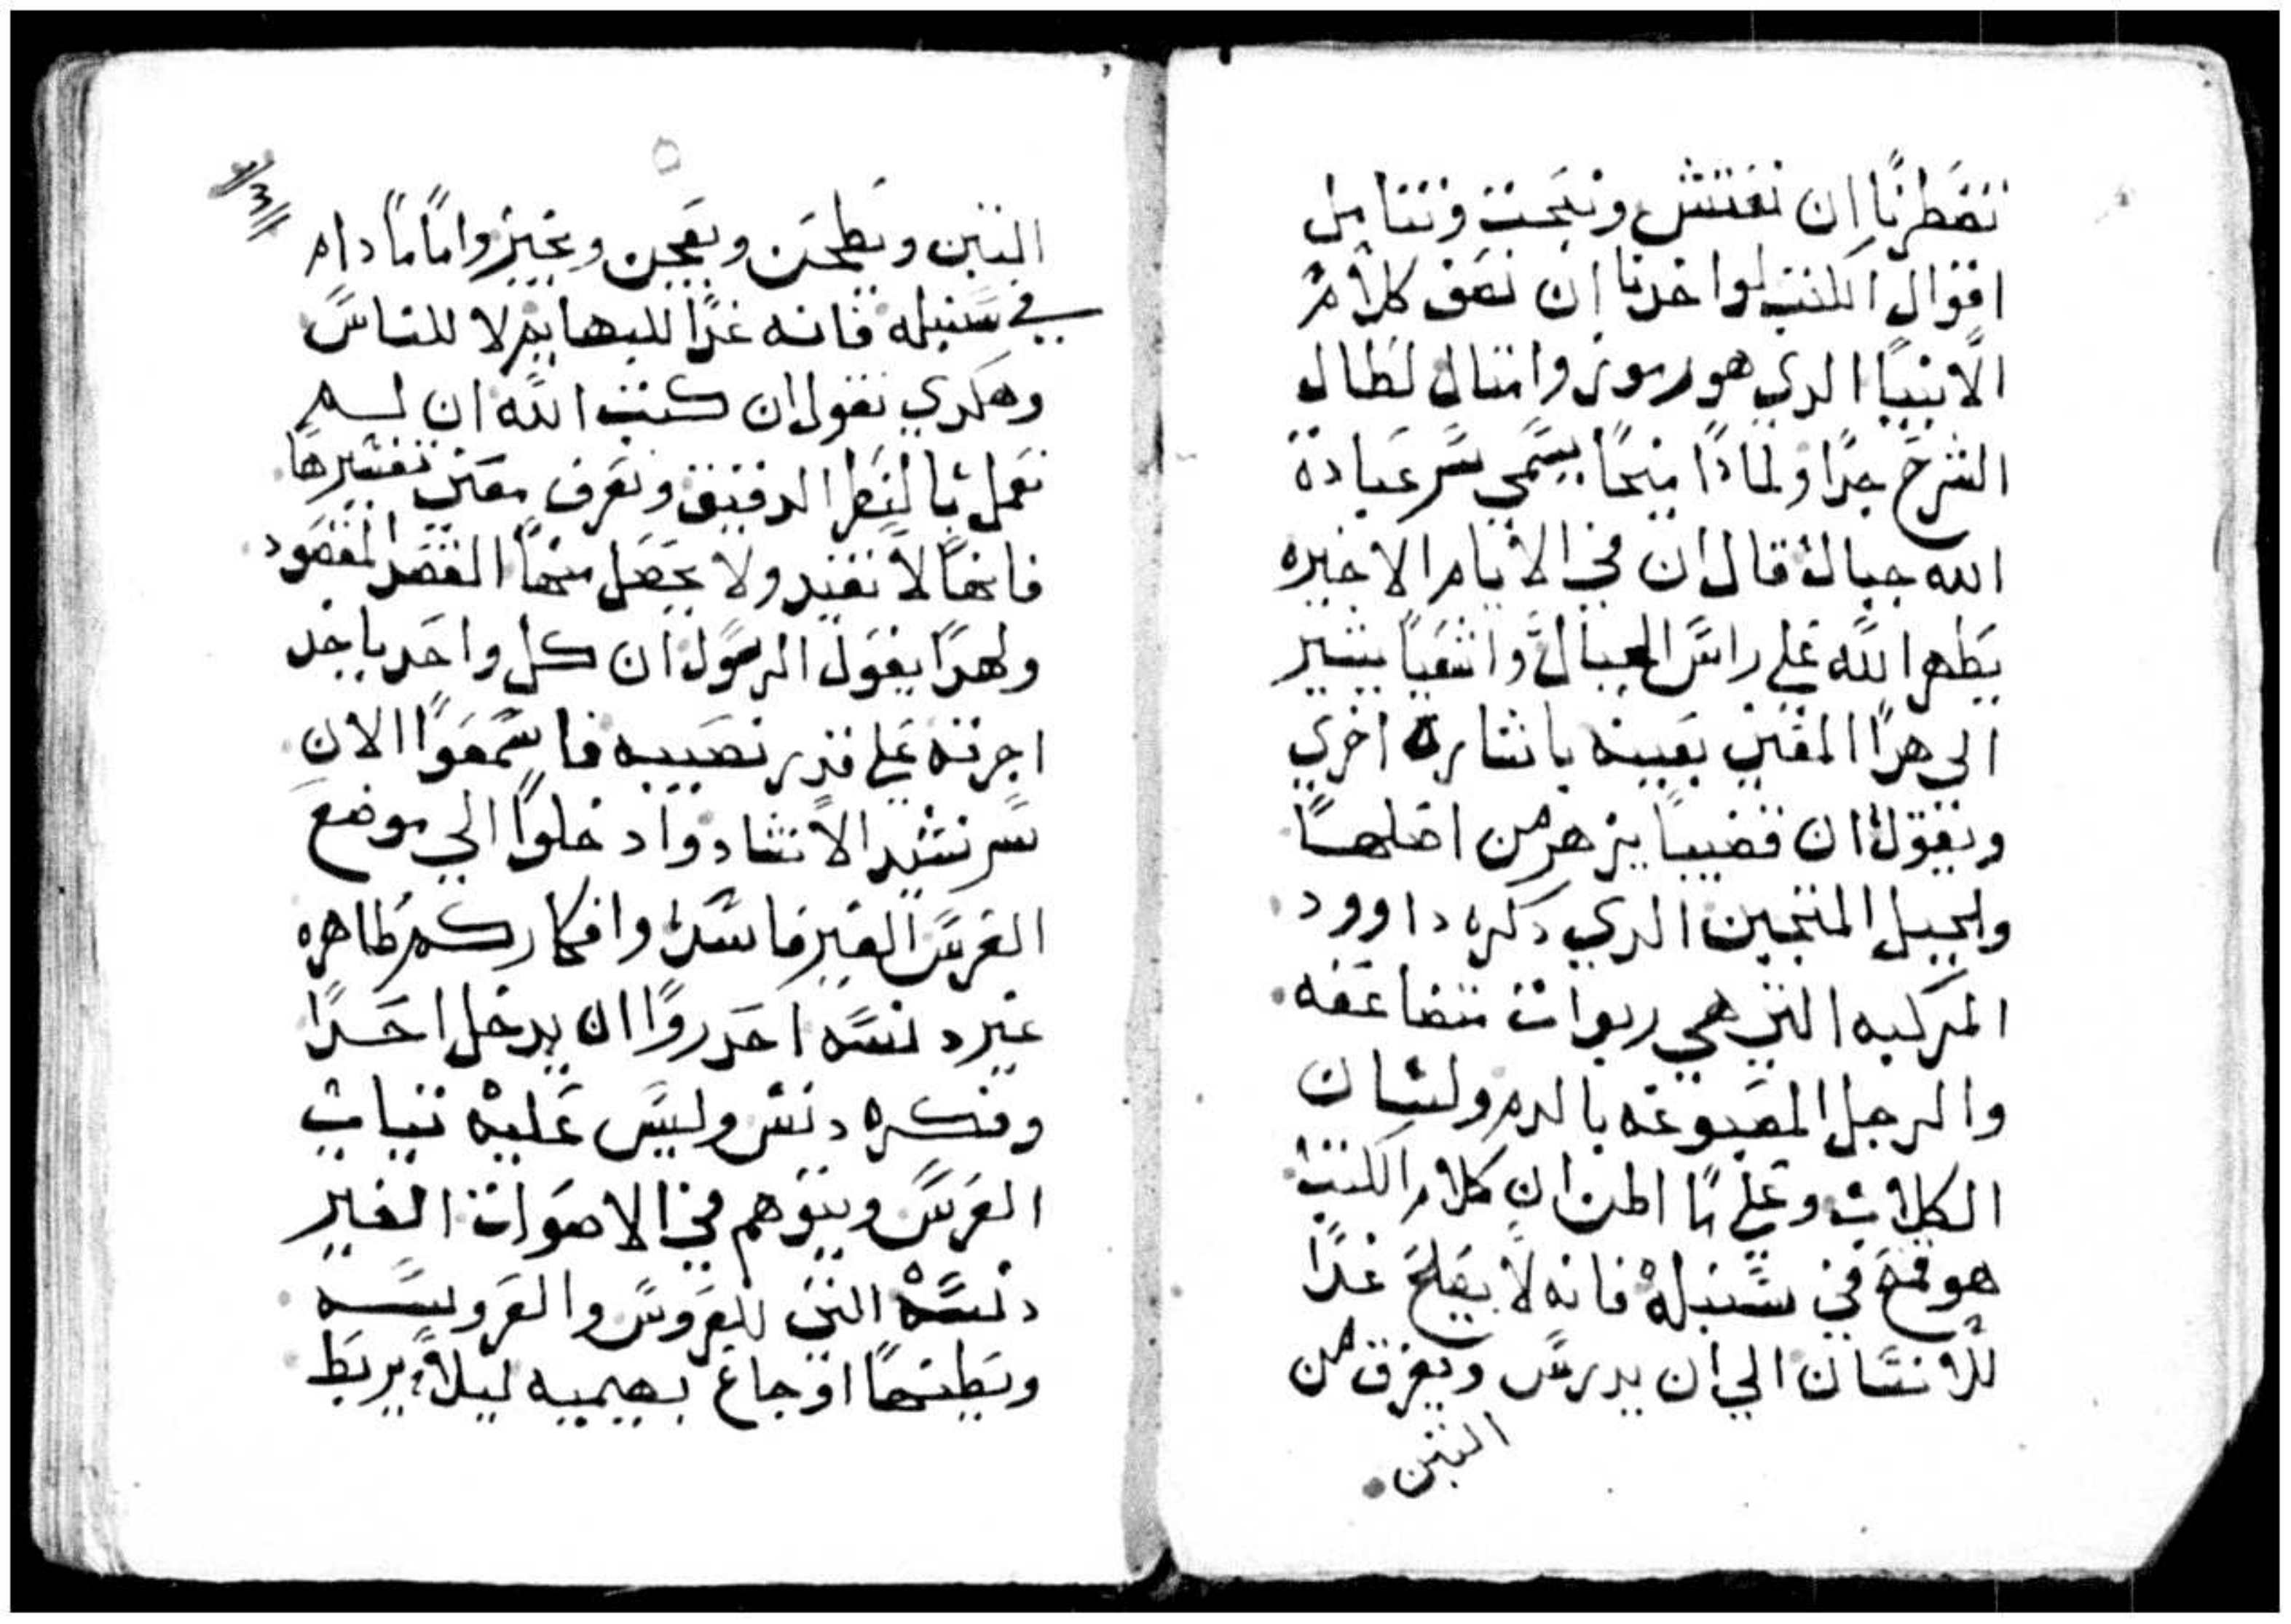 تضطرنا ان نفتش ونبحث ونتامل
اقوال الكتب لو اخدنا ان نصف كلام
الانبيا الدي هو رموز وامتال لطال
الشرح جدا ولمادا ميخا يسمي سر عبادة
الله جبال قال ان في الايام الاخيره
يظهر الله علي راس الجبال واشعيا يشير
الي هدا المعني بعينه باشاره اخري
ويقول ان قضيبا يزهر من اصلها
ولجيل المنجين الدي دكره داوود
المركبه التي هي ربوات متضاعفه
والرجل المصبوغه بالدم ولسان
الكلاب وعلي ما اظن ان كلام الكتب
هو قمح في سنبله فانه لا يصلح غدا
للانسان الي ان يدرس ويفرق من
التبن
التبن ويطحن ويعجن ويخبز واما ما دام
في سنبله فانه غدا للبهايم لا للناس
وهكدي نقول ان كتب الله ان لم
نعمل بالنظر الدقيق ونعرف معني تفسيرها
فانها لا تفيد ولا يحصل منها القصد المقصود
ولهدا يقول الرسول ان كل واحد ياخد
اجرته علي قدر نصيبه فاسمعوا الان
سر نشيد الانشاد وادخلوا الي موضع
العرس الغير فاسد وافكاركم طاهره
غير دنسه احدروا ان يدخل احدا
وفكره دنس وليس عليه تياب
العرس ويتوهم في الاصوات الغير
دنسه التي للعروس والعروسه
ويظنها اوجاع بهيميه ليلا يربط